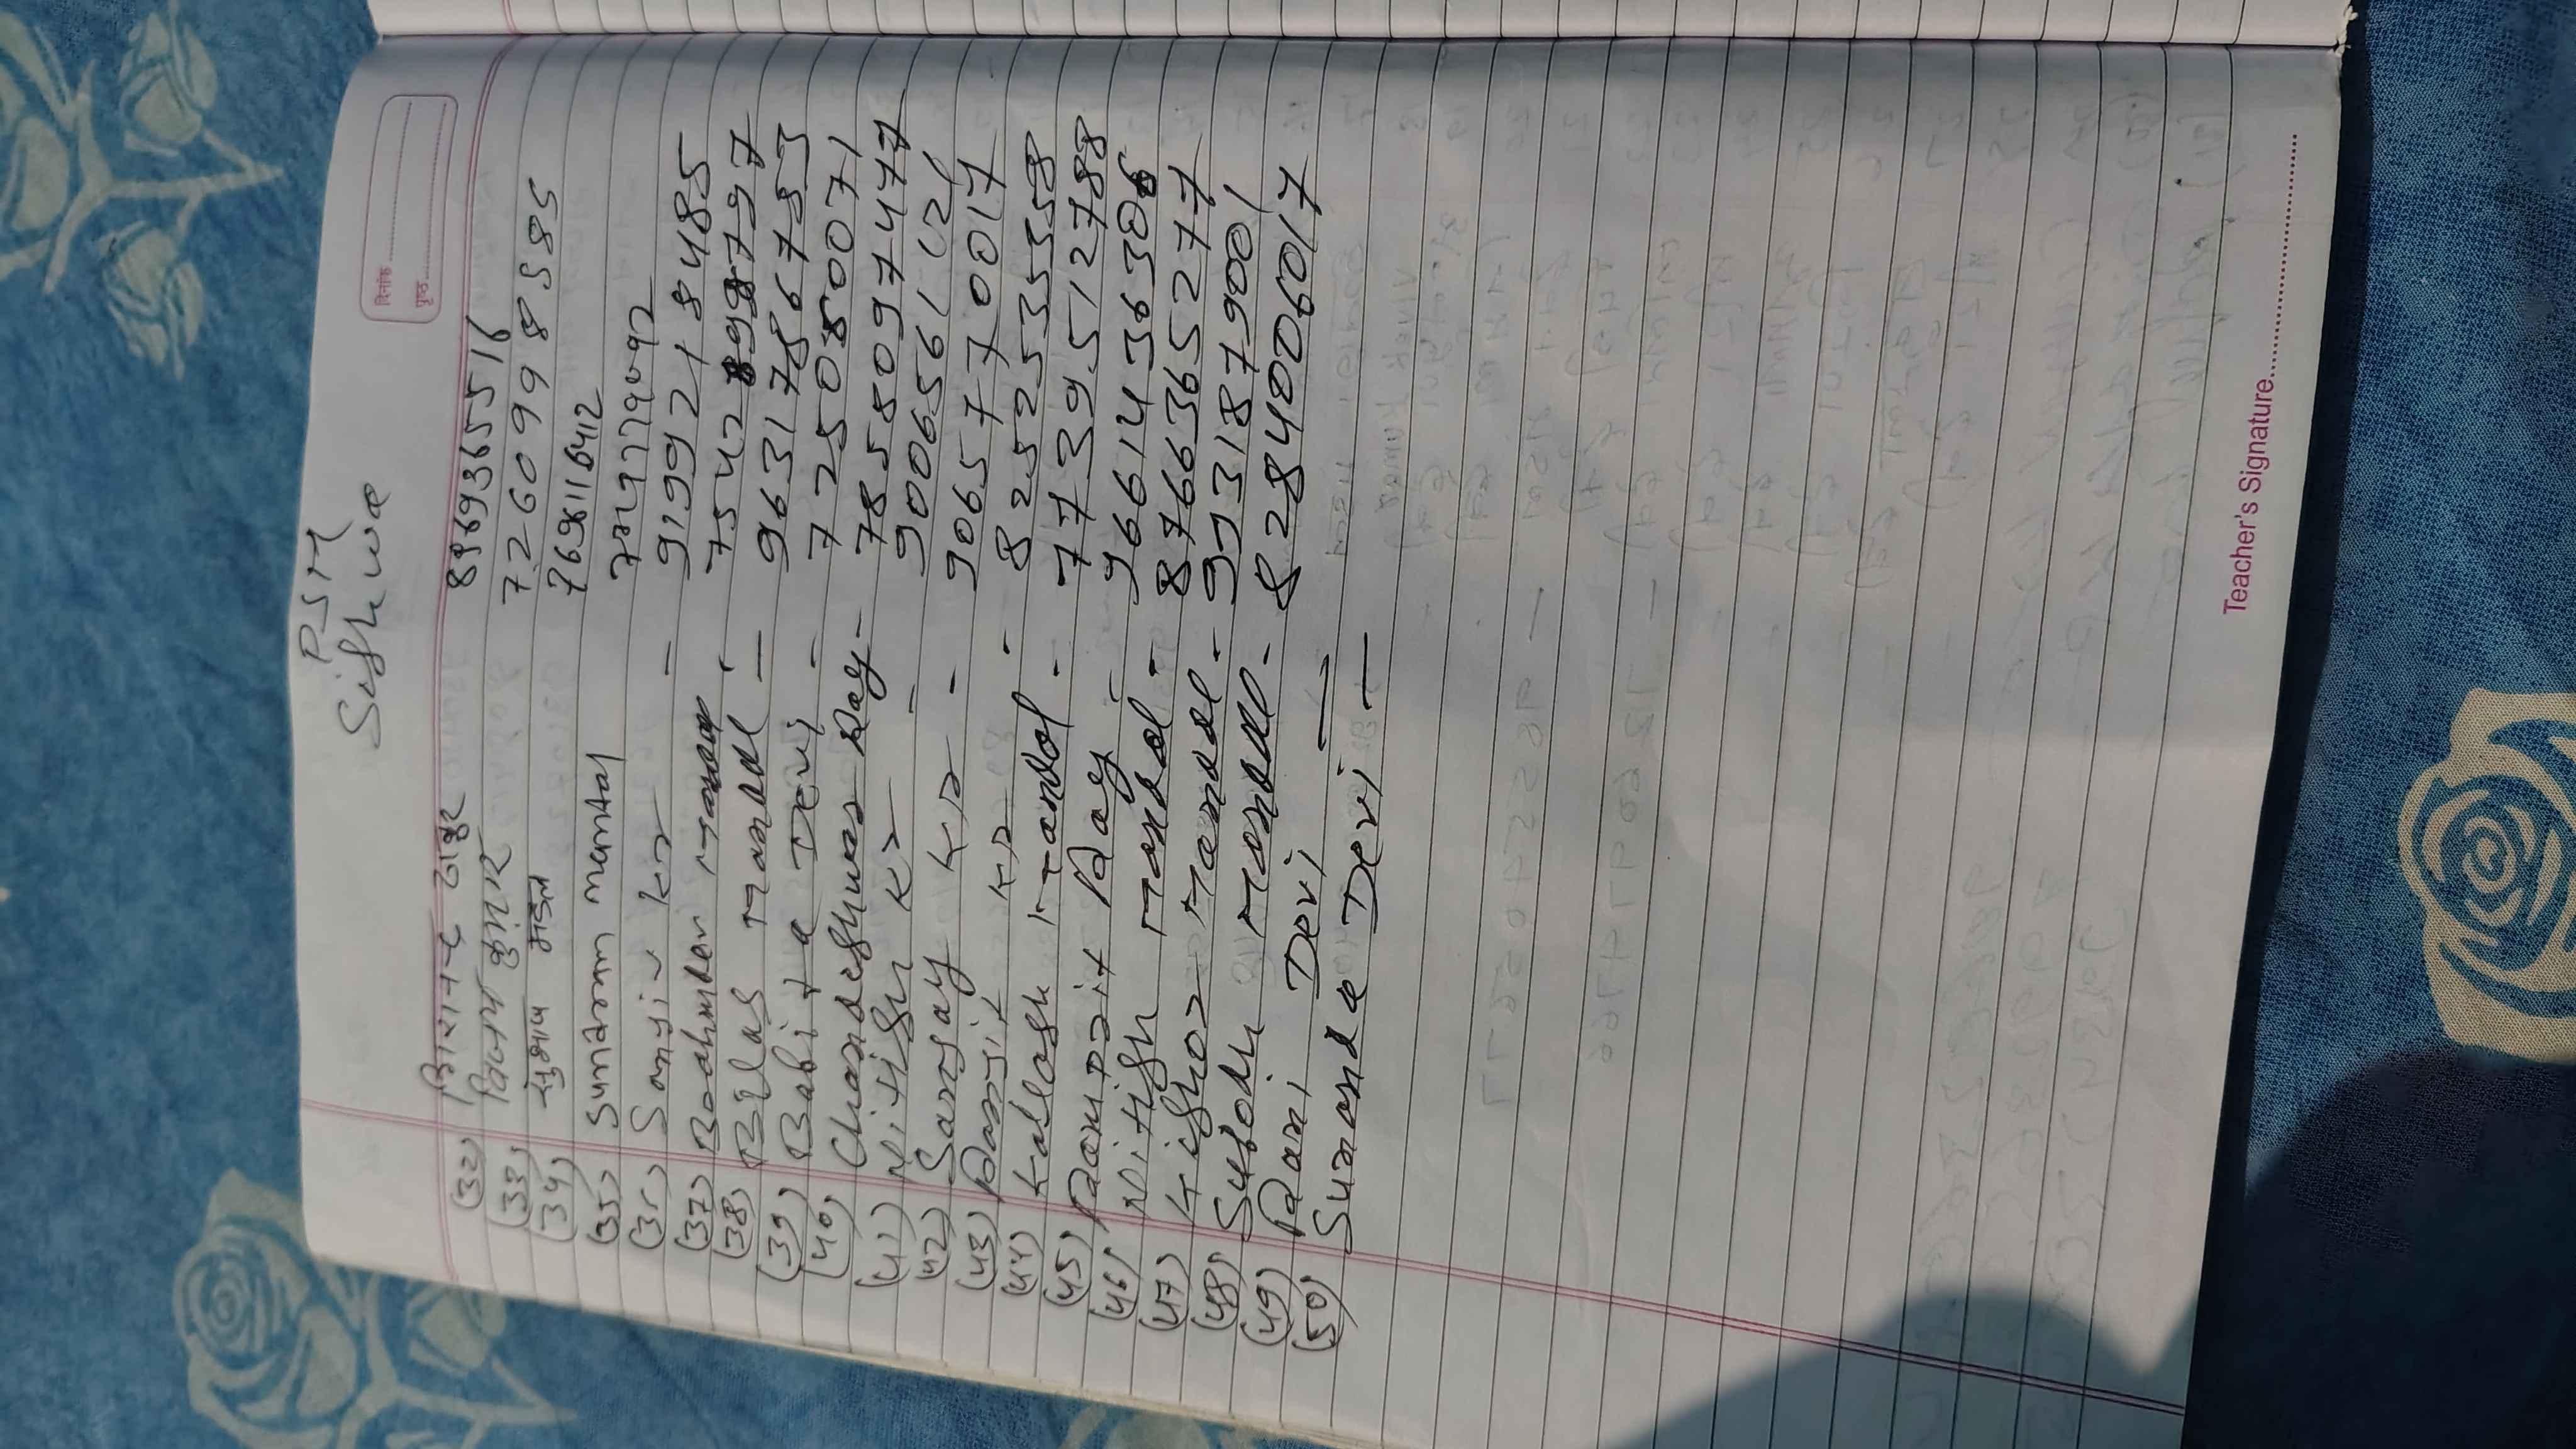 PSM
Sishwa
दिनांक
पृष्ठ
(32) ठाकुर 8969365516
(33) विनय कुमार 7260998585
(34) सुभाष मंडल 7698116412
(35) Sundram mumtal
(35) Sanjiv Kr - 9199218485
(37) 7542899797
(38) Bilas Mandal - 9631786783
(39) Babita Devi - 7250850071
(40) Chandeshwar Ray - 7858097477
(41) Nitish Kr -
(42) Sanjay Kr - 9065770017
(43) Ranjit Kr - 825253558
(44) Kailash Mandal - 7739512788
(45) Ramprit Ray - 9661436306
(46) Nitish Mandal - 8766365277
(47) Kishor Mandal - 9931879001
(48) Subodh Mandal - 8284006017
(49) Rani Devi —
(50) Sunanda Devi —
Teacher's Signature